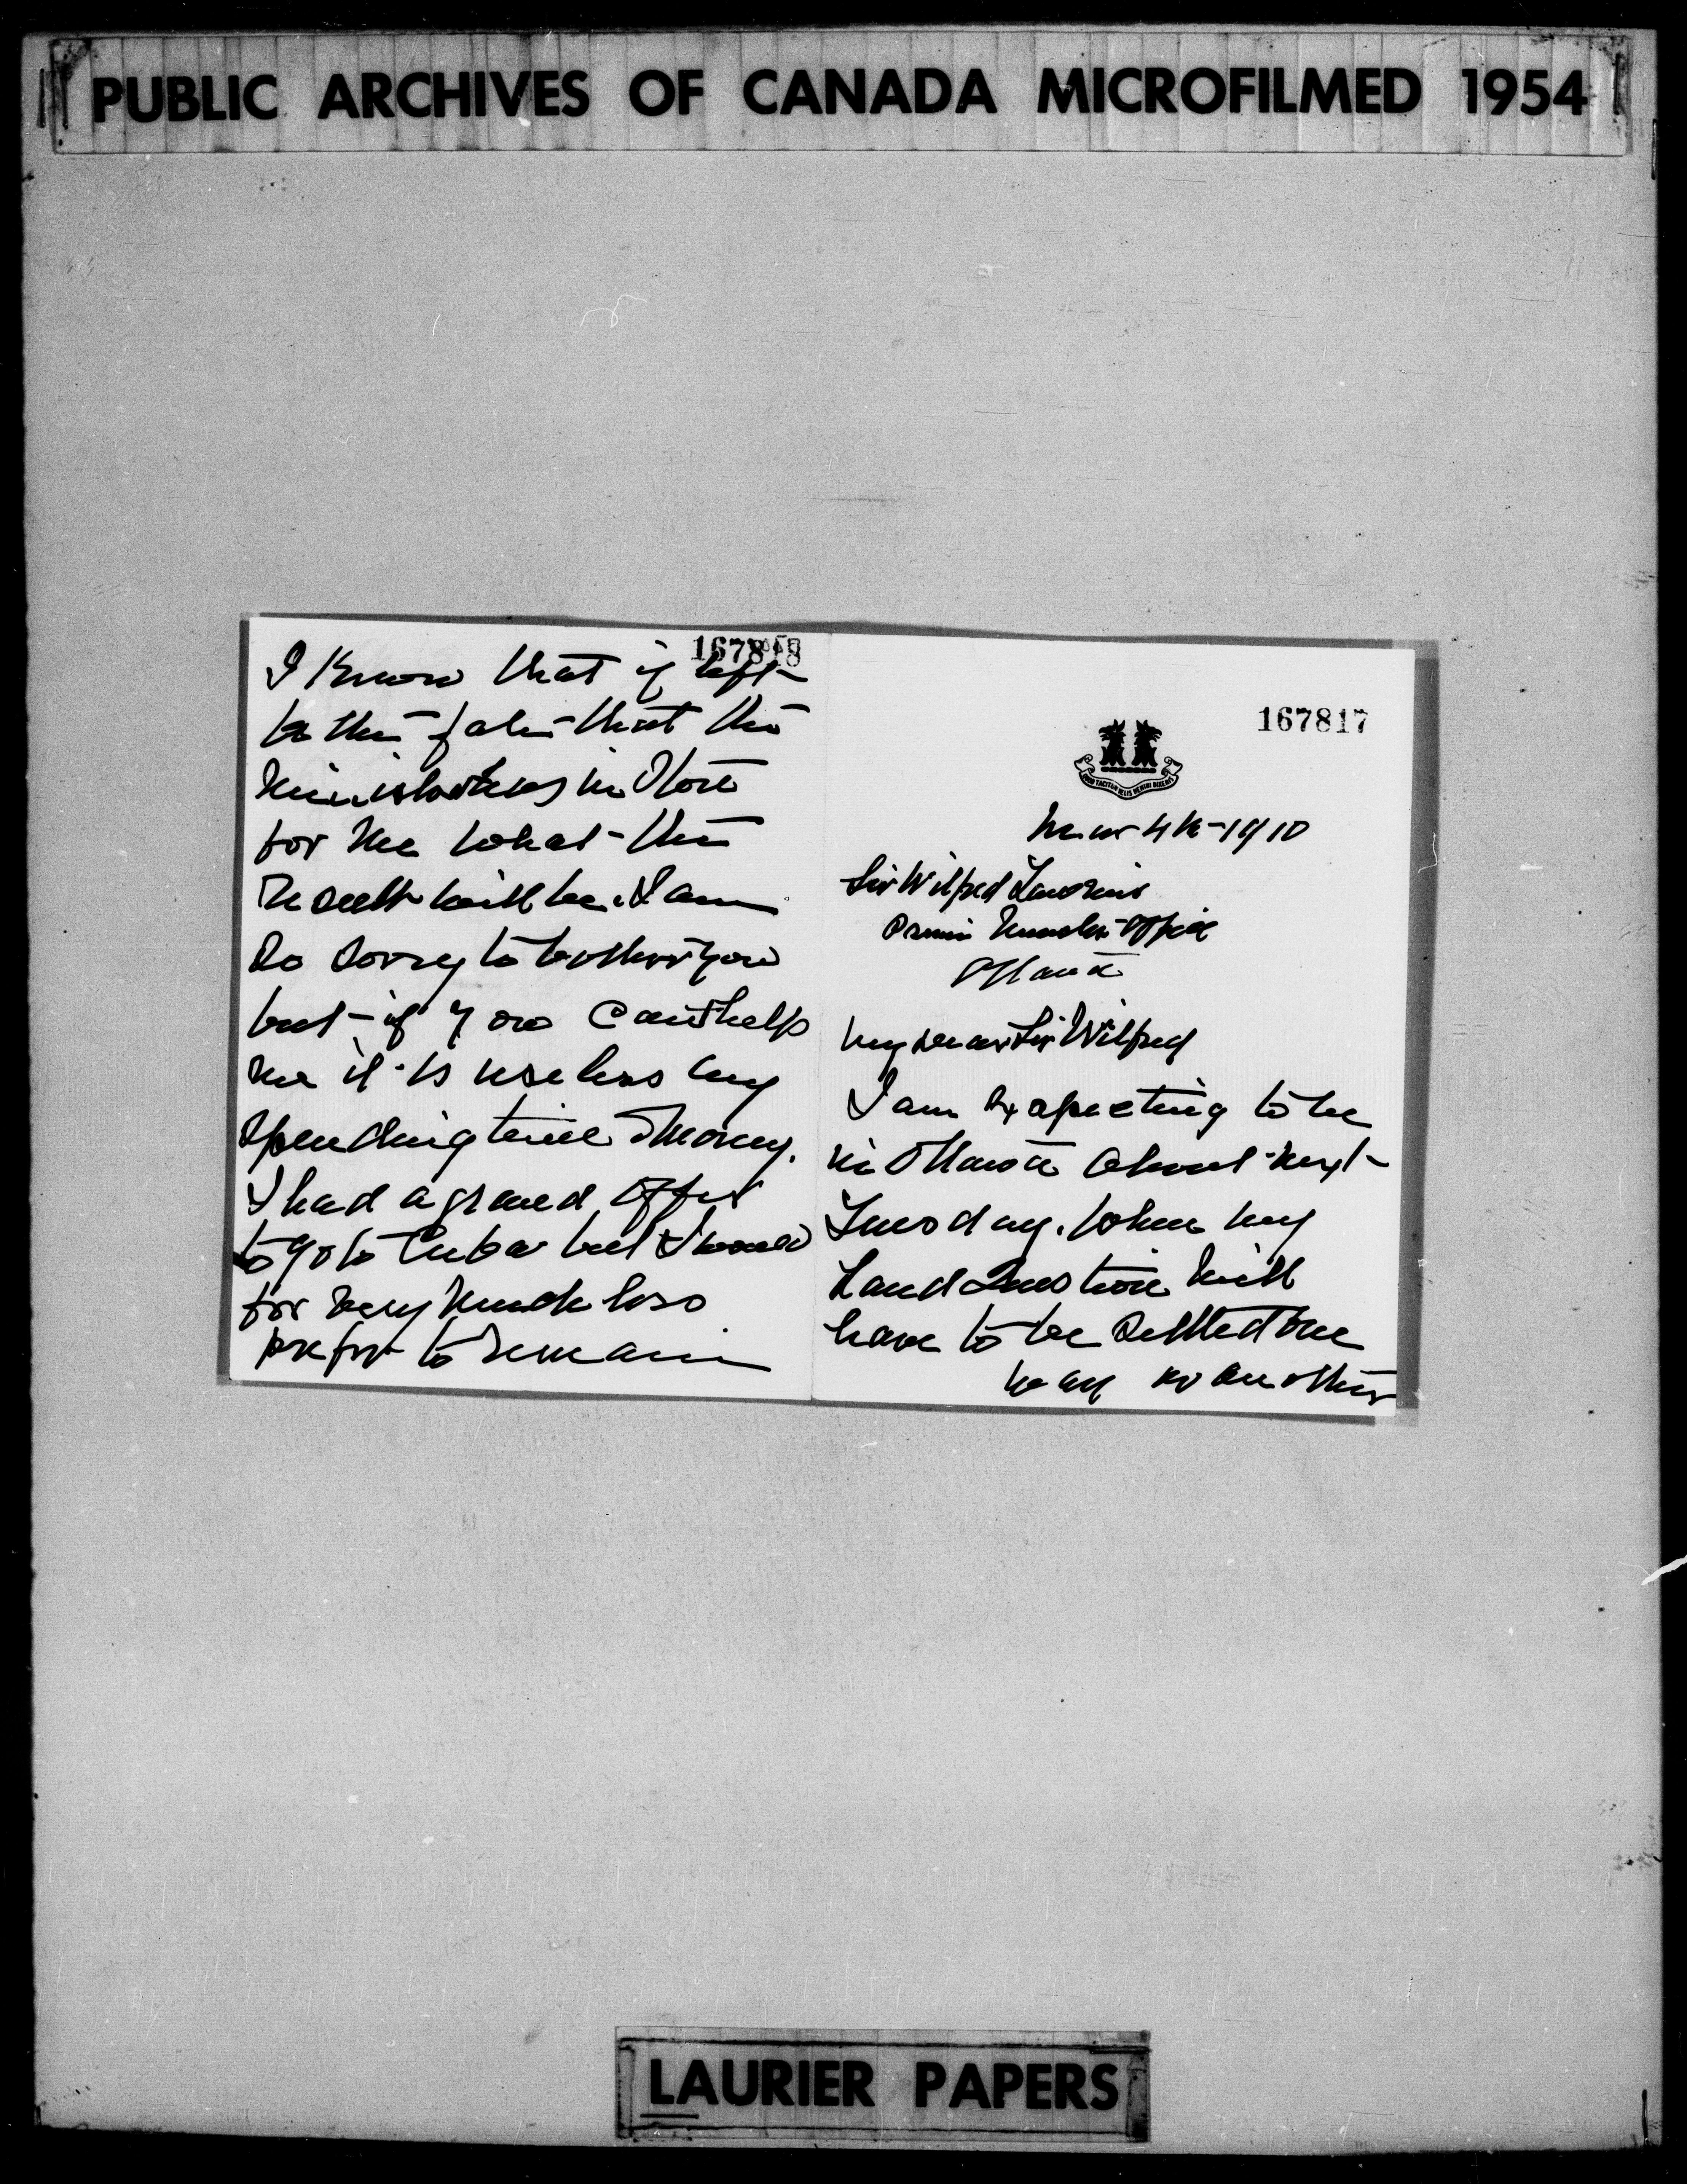 PUBLIC ARCHIVES OF CANADA MICROFILMED 1954
167817
Mar 4th 1910
Sir Wilfred Laurier
Office
Ottawa
My dear Sir Wilfred
I am expecting to be
in Ottawa about next
Tuesday. when my
Land Question will
have to be settled one
way or another
167818
I know that if left
to the that the
in store
for me what the
result will be. I am
so sorry to bother you
but if you can't help
me it is useless my
spending time & money.
I had a grand offer
to go to Cuba but I would
for very much less
prefer to remain
LAURIER PAPERS